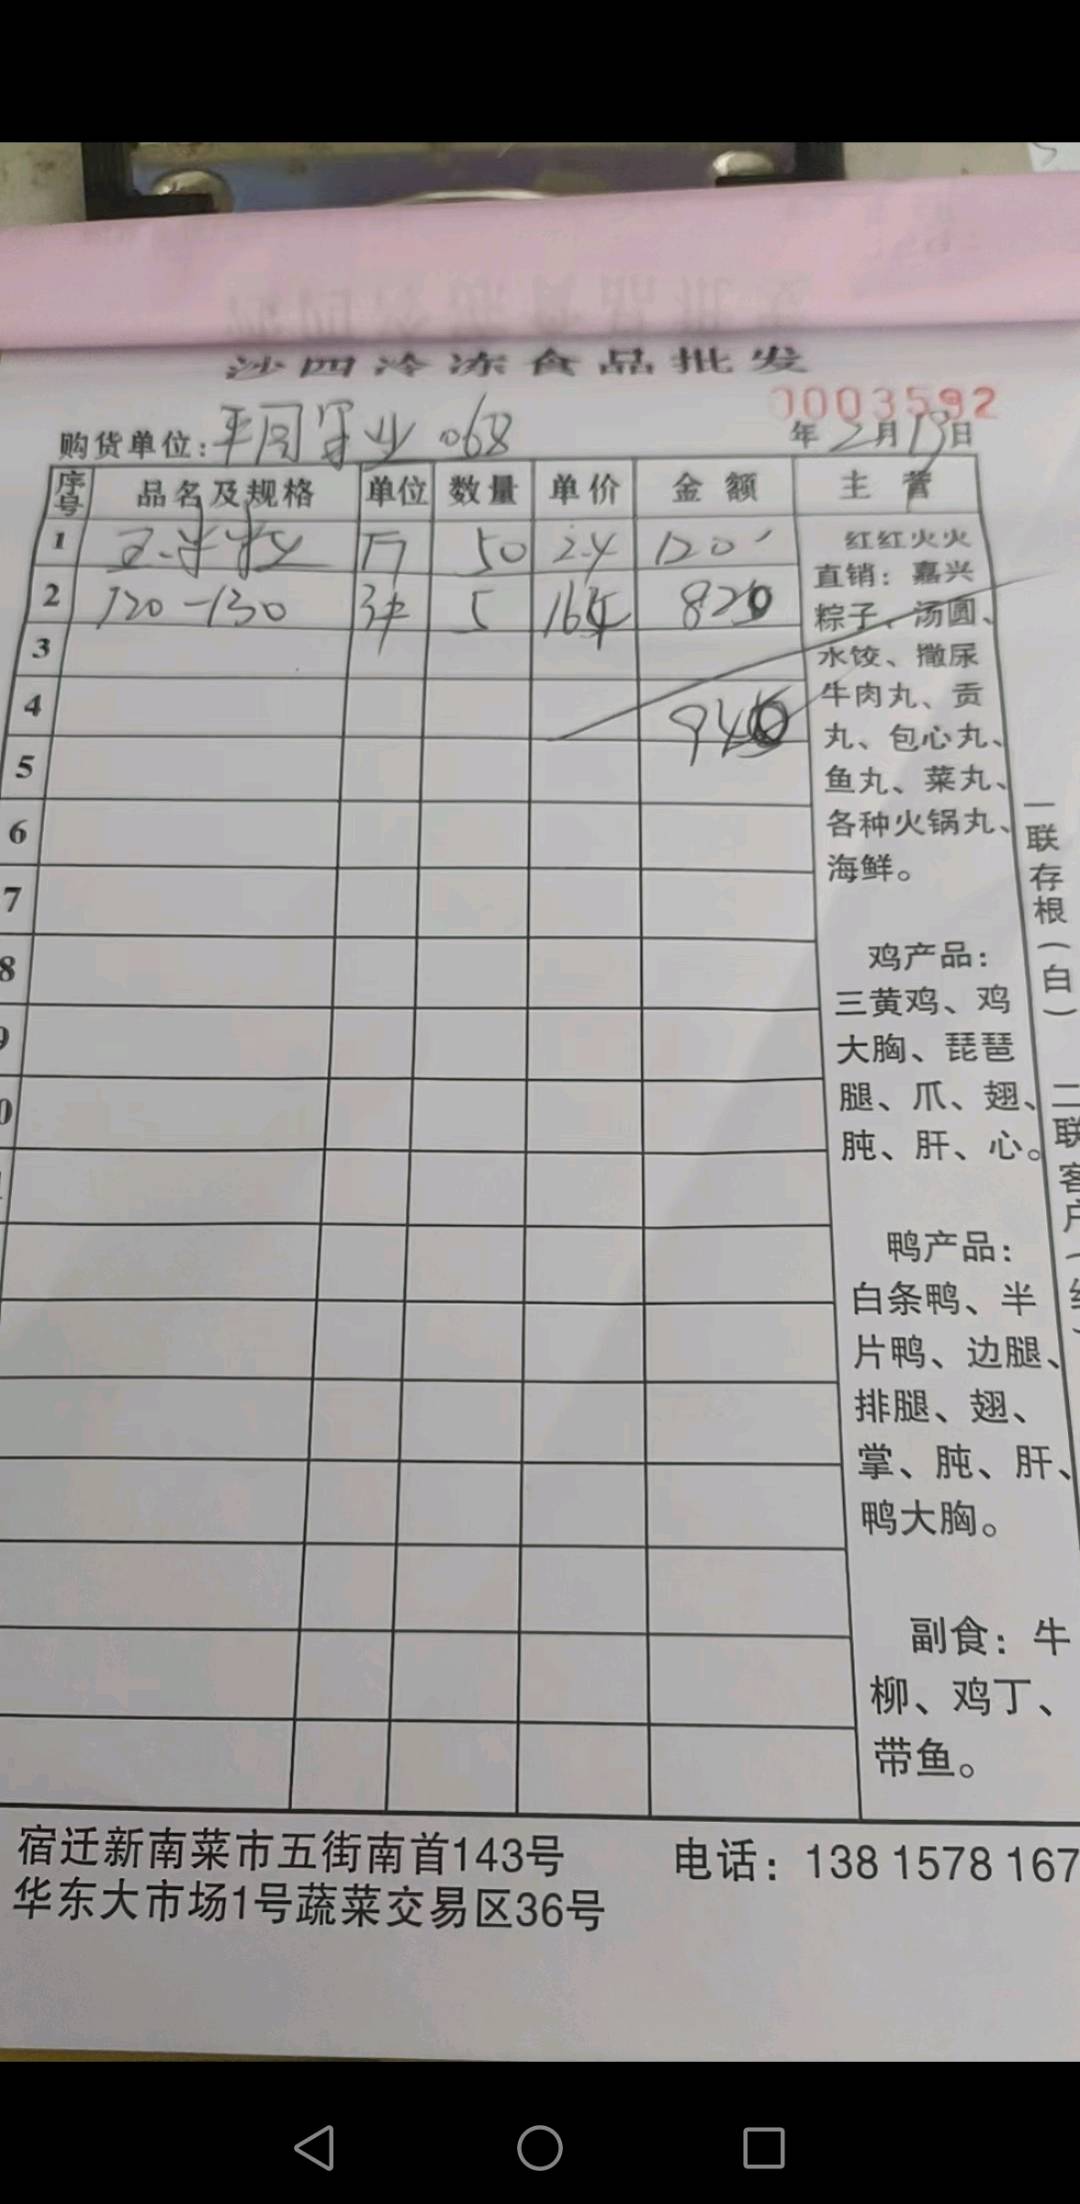 沙四冷冻食品批发
0003592
购货单位: 068 年2月13日
序号 品名及规格 单位 数量 单价 金额 主营
1 50 2.4 120
2 120-130 5 164 820
3
4 940
5
6
7
8
红红火火
直销：嘉兴
粽子、汤圆、
水饺、撒尿
牛肉丸、贡
丸、包心丸、
鱼丸、菜丸、
各种火锅丸、
海鲜。
鸡产品：
三黄鸡、鸡
大胸、琵琶
腿、爪、翅、
肫、肝、心。
鸭产品：
白条鸭、半
片鸭、边腿、
排腿、翅、
掌、肫、肝、
鸭大胸。
副食：牛
柳、鸡丁、
带鱼。
一联存根(白) 二联客户
宿迁新南菜市五街南首143号 电话：138 1578 167
华东大市场1号蔬菜交易区36号